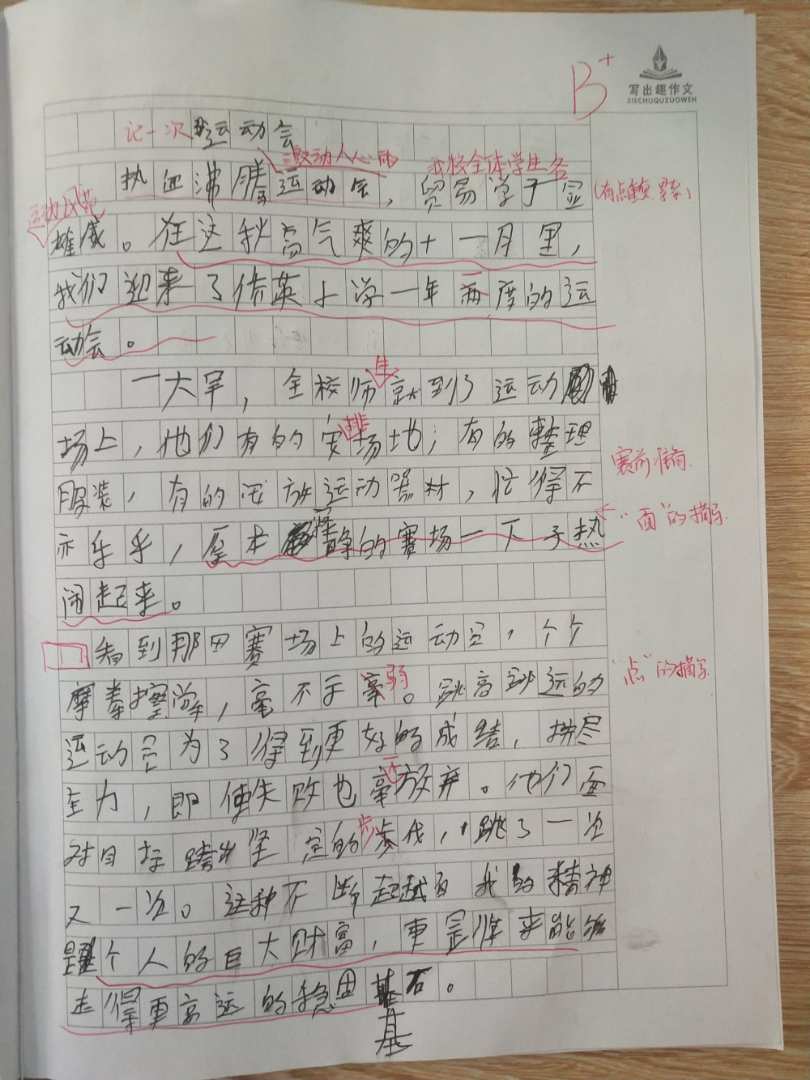 B+
写出趣作文
XIECHUQUZUOWEN
记一次运动会
激动人心的 我校全体学生名
热血沸腾运动会，贸易学子显
运动风范
雄威。在这秋高气爽的十一月里，
我们迎来了倍英小学一年两度的运
动会。
一大早，全校师生就到了运动
场上，他们有的安排场地；有的整理
服装，有的摆放运动器材，忙得不
赛前准备
亦乐乎，原本安静的赛场一下子热
"面"的描写
闹起来。
看到那田赛场上的运动员，个个
摩拳擦掌，毫不示弱。跳高跳远的
"点"的描写
运动员为了得到更好的成绩，拼尽
全力，即使失败也毫不放弃。他们面
对目标跨出坚定的步伐，跳了一次
又一次。这种不断超越自我的精神
是个人的巨大财富，更是将来能够
走得更高远的稳固基石。
基